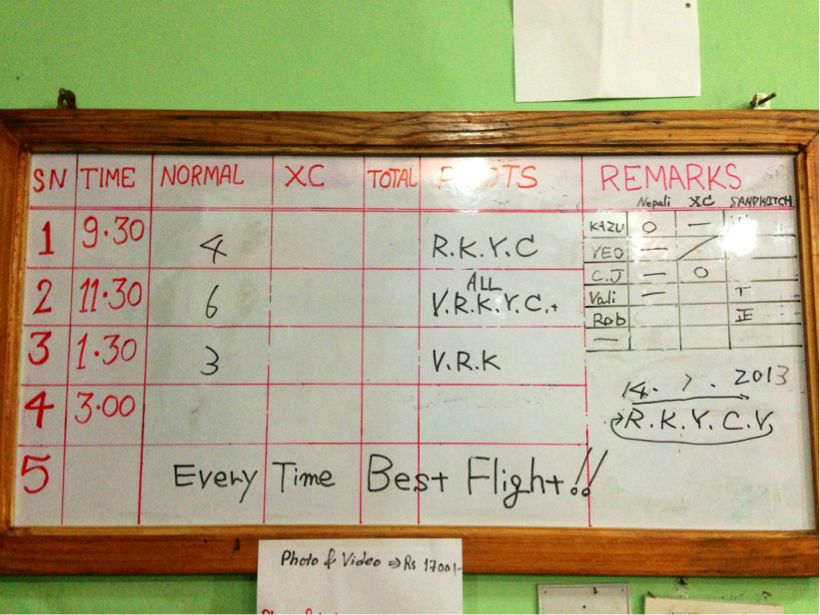 SN TIME NORMAL XC TOTAL PILOTS REMARKS
Nepali XC SANDWITCH
1 9.30 4 R.K.Y.C
KAZU O —
YEO —
2 11.30 6 ALL V.R.K.Y.C.+
C.J — O
Vali — T
Rob 正
—
3 1.30 3 V.R.K
14. 7. 2013
4 3.00
R.K.Y.C.V
5 Every Time Best Flight!!
Photo & Video ⇒ Rs 1700/-